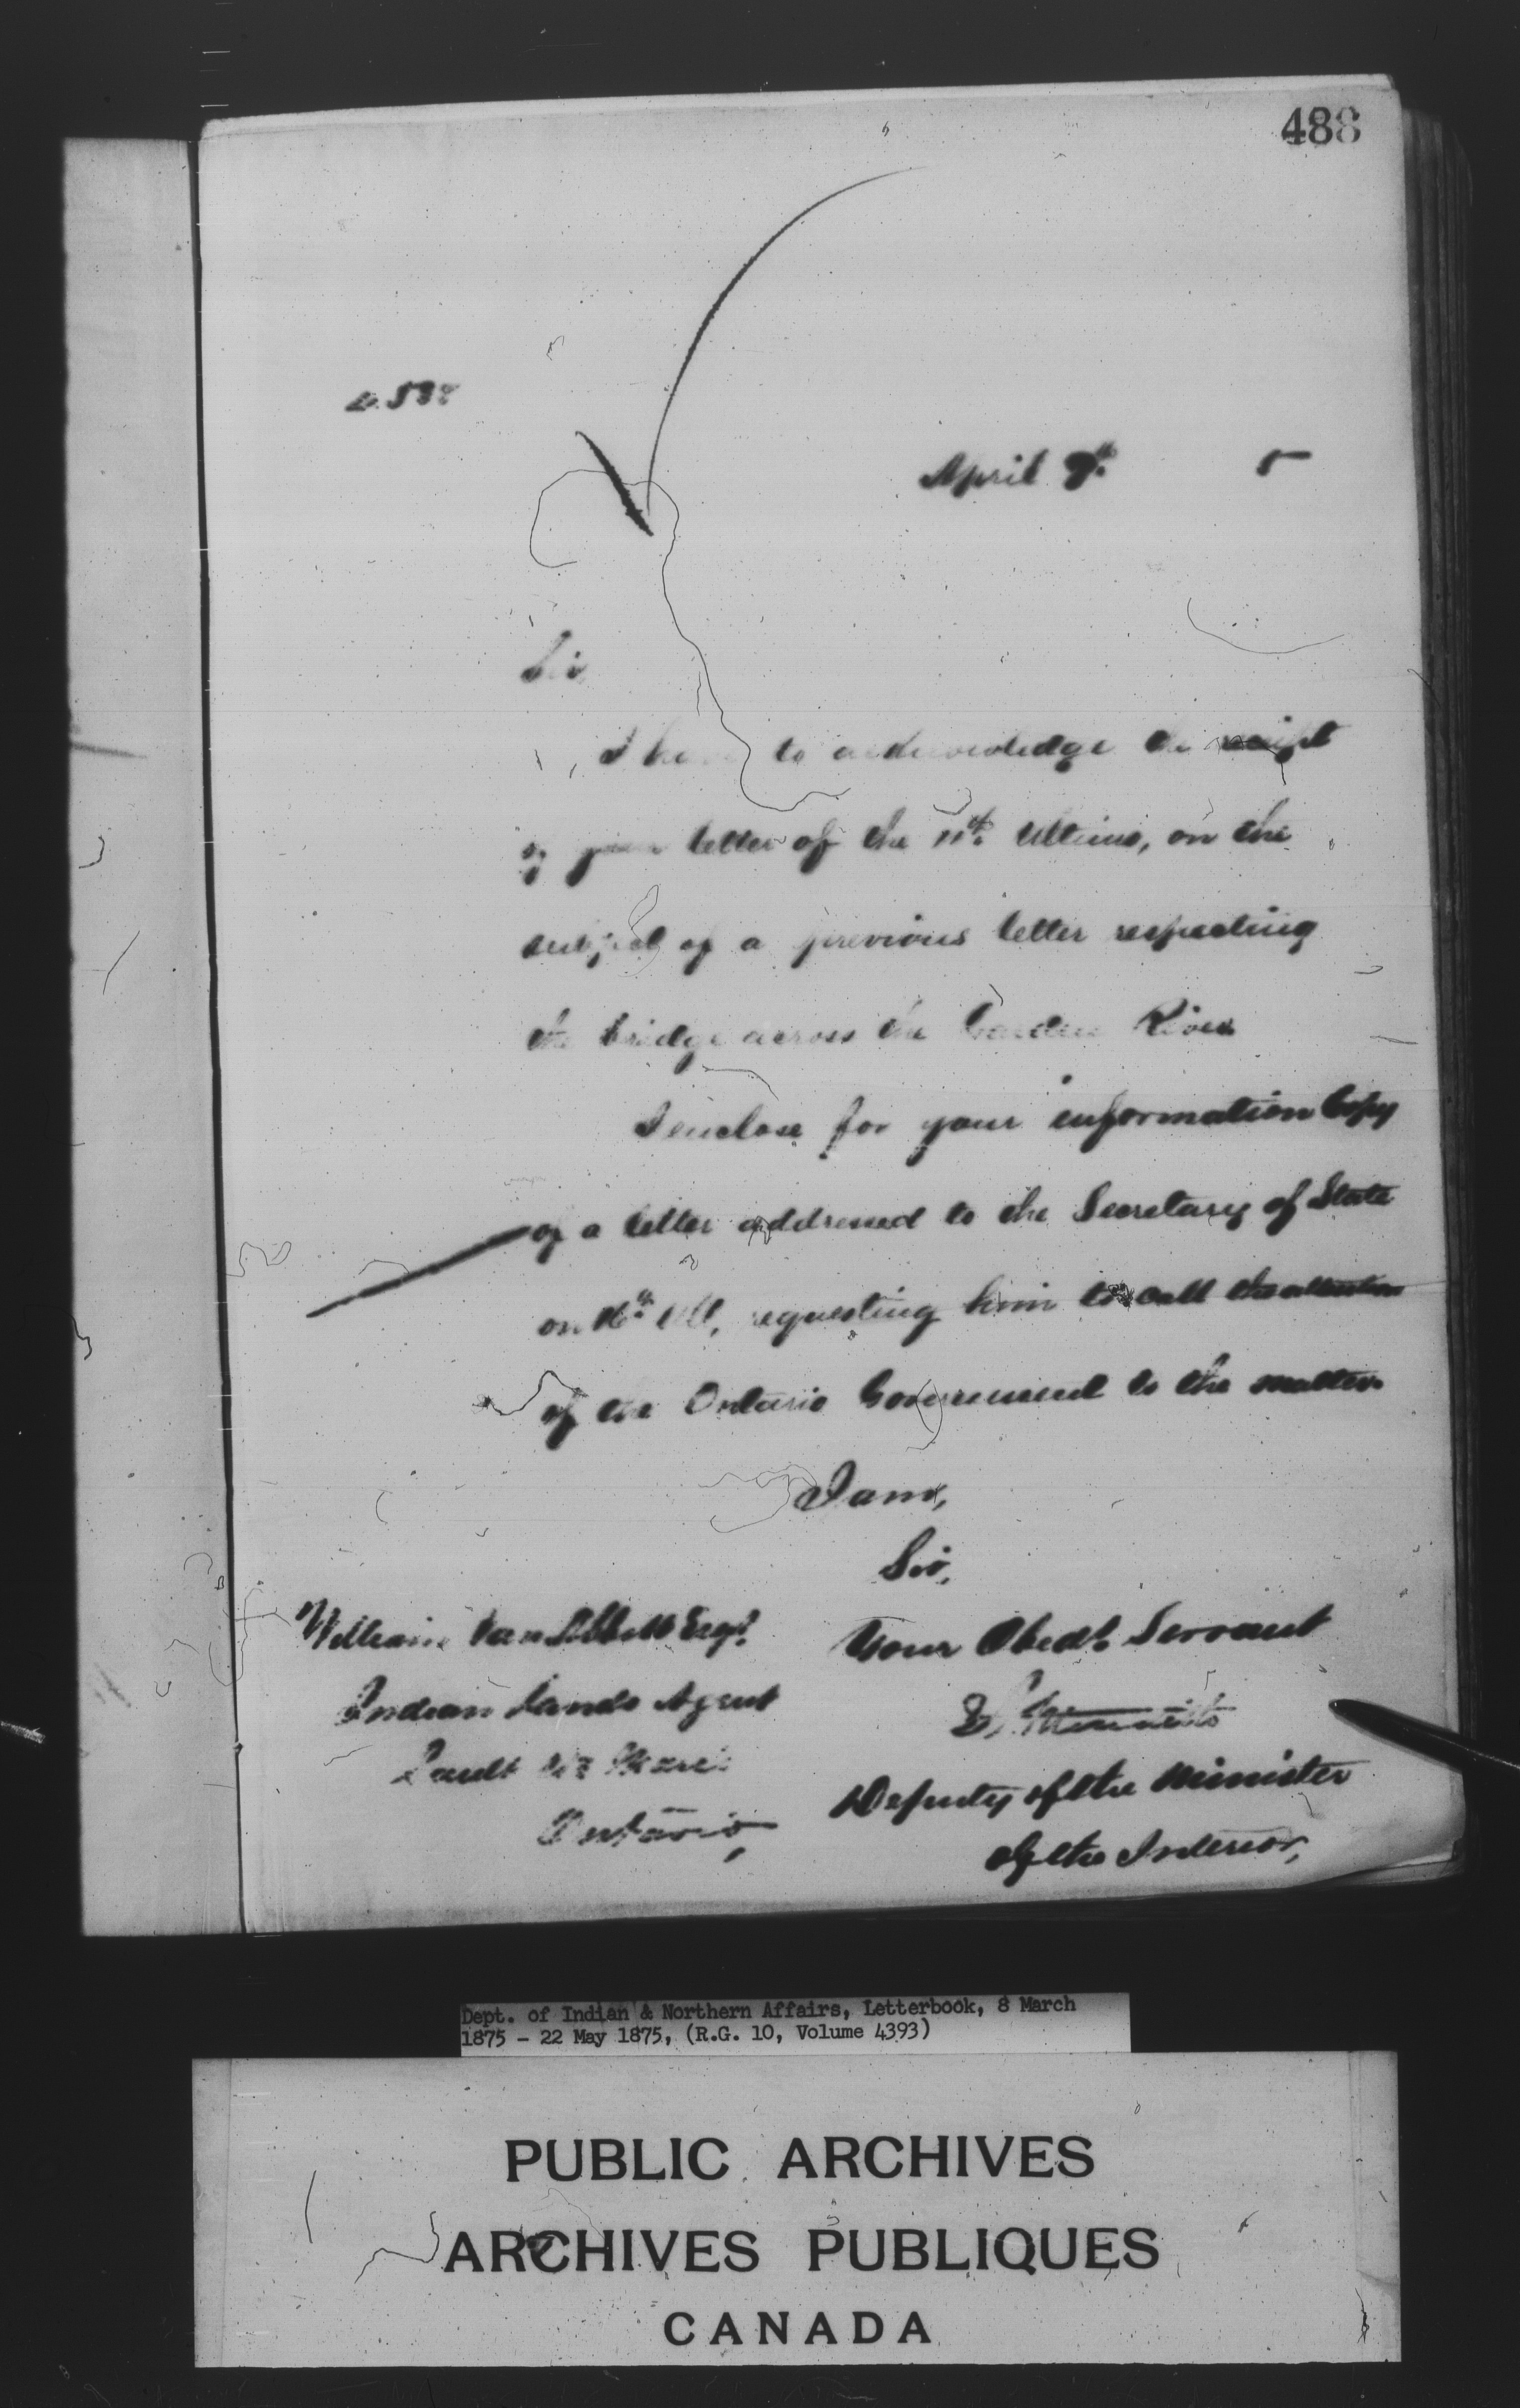 488
April 9th 5
Sir
I have to acknowledge the receipt
of your letter of the 11th Ultimo, on the
subject of a previous letter respecting
the bridge across the Garden River
I enclose for your information Copy
of a letter addressed to the Secretary of State
on 16th Ult, requesting him to call the attention
of the Ontario Government to the matter.
I am,
Sir,
William Van Abbott Esqr.
Your Obedt Servant
Indian Lands Agent
Sault Ste Marie
Deputy of the Minister
Ontario,
of the Interior,
Dept. of Indian & Northern Affairs, Letterbook, 8 March
1875 - 22 May 1875, (R.G. 10, Volume 4393)
PUBLIC ARCHIVES
ARCHIVES PUBLIQUES
CANADA